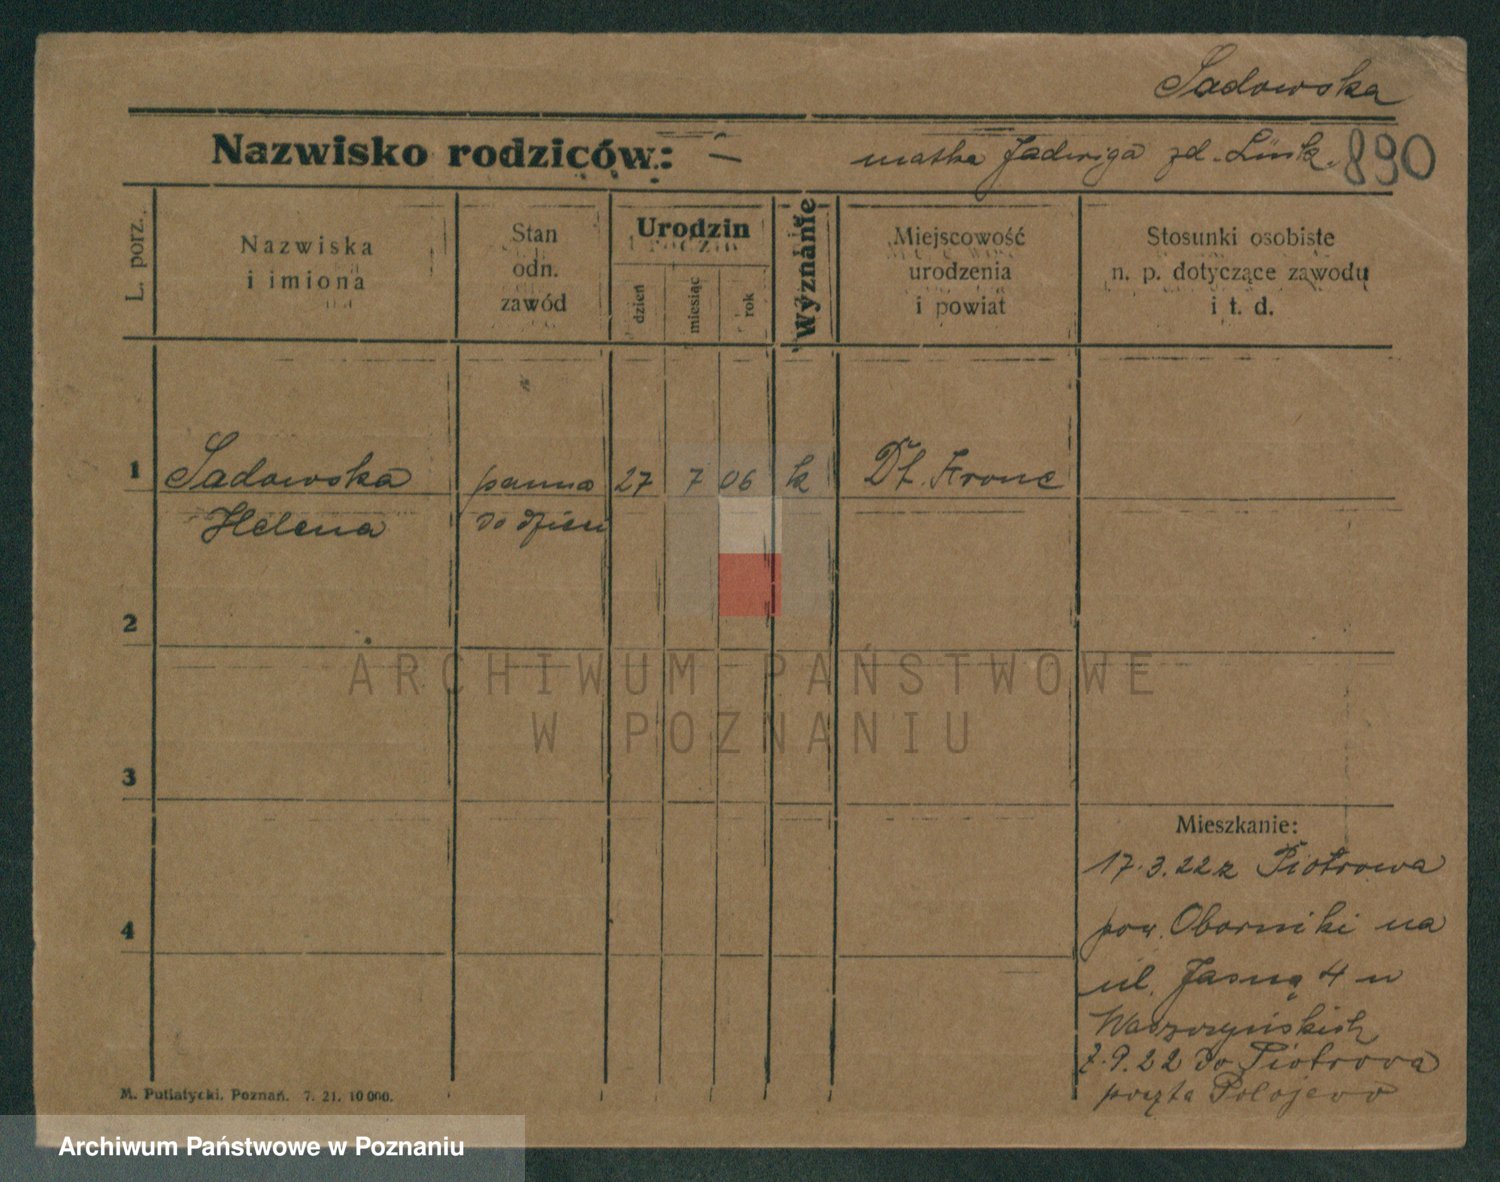 Sadowska
Nazwisko rodziców: — matka Jadwiga zd. Link. 890
L. porz.
Nazwiska
i imiona
Stan
odn.
zawód
Urodzin
dzień
miesiąc
rok
Wyznanie
Miejscowość
urodzenia
i powiat
Stosunki osobiste
n. p. dotyczące zawodu
i t. d.
1 Sadowska panna 27 7 06 k Dt. Krone
Helena do dzieci
2
3
4
ARCHIWUM PAŃSTWOWE
W POZNANIU
Mieszkanie:
17.3.22 z Piotrowa
pow. Oborniki na
ul. Jasną 4 u
7.9.22 do Piotrowa
poczta Połajewo
M. Putiatycki, Poznań. 7. 21. 10 000.
Archiwum Państwowe w Poznaniu